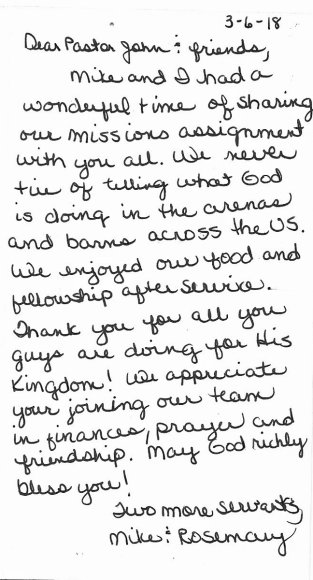 3-6-18
Dear Pastor John & friends,
Mike and I had a
wonderful time of sharing
our missions assignment
with you all. We never
tire of telling what God
is doing in the arenas
and barns across the US.
We enjoyed our food and
fellowship after service.
Thank you for all you
guys are doing for His
Kingdom! We appreciate
your joining our team
in finances, prayer and
friendship. May God richly
bless you!
Two more servants,
Mike & Rosemary